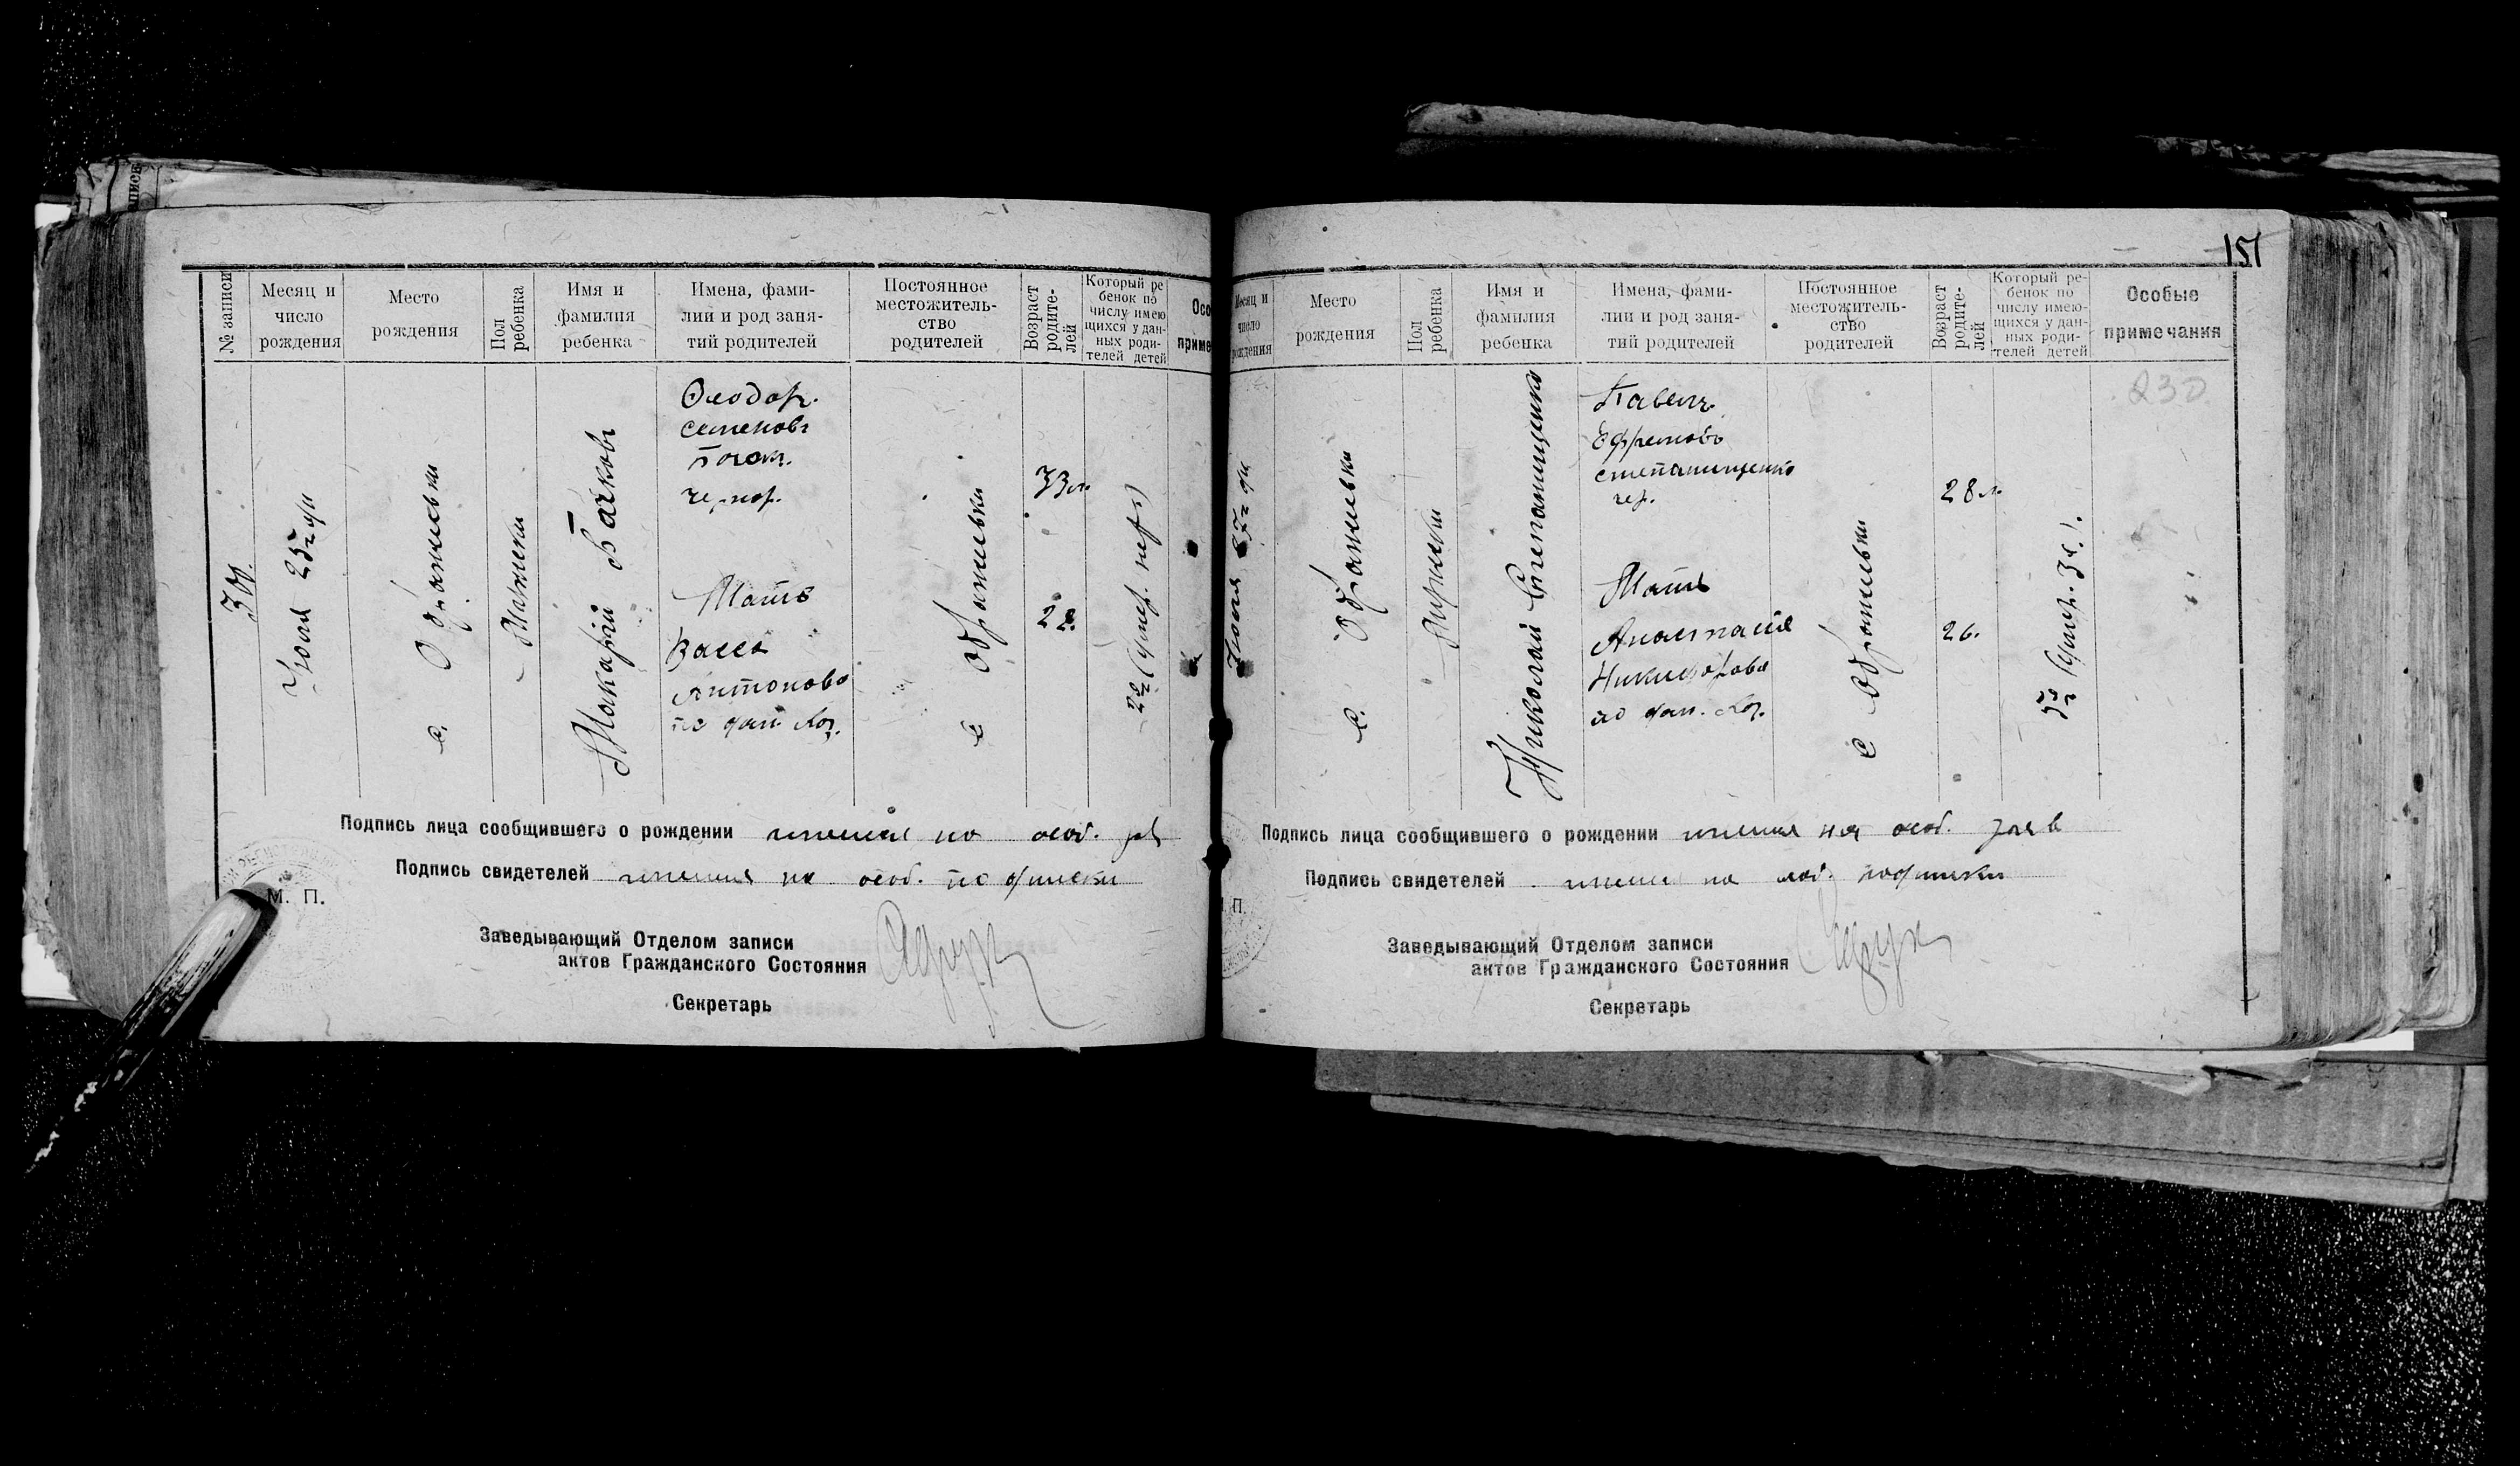 № записи
Месяц и число рождения
Место рождения
Пол ребенка
Имя и фамилия ребенка
Имена, фами-
лии и род заня-
тий родителей
Постоянное
местожитель-
ство
родителей
Возраст родите-
лей
Который ре
бенок по
числу имею
щихся у дан-
ных роди-
телей детей
Осо
приме
300.
Июля 25го дн
с. Обр
Мужски
Макарій Бачковъ
Феодор.
Семеновъ
Бачк.
чернор.
Мать
Васса
Антонова
по дом. хоз.
с
33 л.
22.
2й (умер. пер)
Подпись лица сообщившего о рождении имеется на особ.
Подпись свидетелей имеется на особ. подписки
М. П.
Заведывающий Отделом записи
актов Гражданского Состояния
Секретарь
151
Месяц и
число
рождения
Место
рождения
Пол
ребенка
Имя и
фамилия
ребенка
Имена, фами-
лии и род заня-
тий родителей
Постоянное
местожитель-
ство
родителей
Возраст
родите-
лей
Который ре-
бенок по
числу имею-
щихся у дан-
ных роди-
телей детей
Особые
примечания
230
Июля
с.
Мужски
Николай Степанищенко
Павелъ
Ефремовъ
Степанищенко
чер.
Мать
Анастасия
Никифорова
по дом. хоз.
с
28 л.
26.
5й (умер. 3й.
Подпись лица сообщившего о рождении имеется на особ. заяв
Подпись свидетелей имеется на особ. подписки
П.
Заведывающий Отделом записи
актов Гражданского Состояния
Секретарь